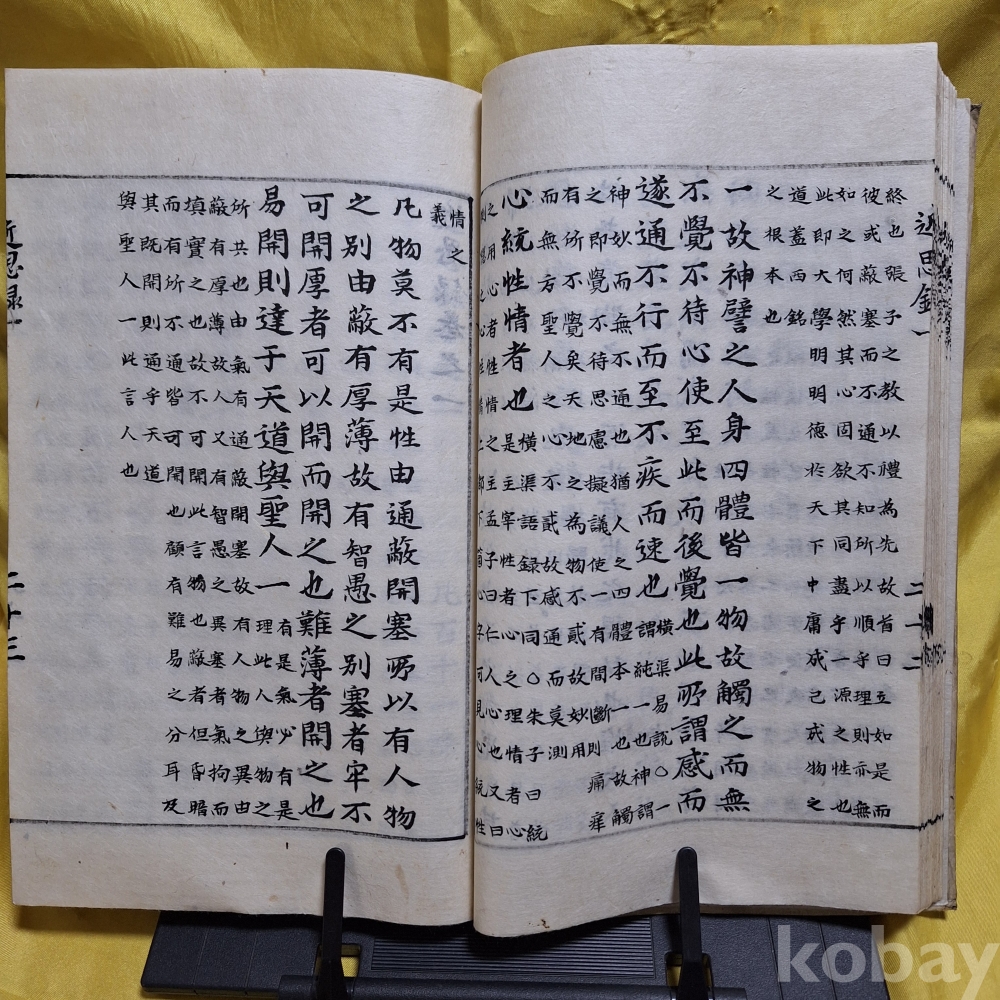 近思錄一 二十二
終也張子之教以禮為先故首曰立如是而
彼或蔽塞而不通不知所以順乎理則亦無
如之何然其心固欲其同盡乎一源之性也
此即大學明明德於天下中庸成己成物之
道蓋西銘
之根本也
一故神譬之人身四體皆一物故觸之而無
不覺不待心使至此而後覺也此所謂感而
遂通不行而至不疾而速也
橫渠易說○一
謂純一也神謂
神妙而無不通也猶人之四體本一也故觸
之即覺不待思慮擬議使一有間斷則痛痒
有所不覺矣天地之為物不貳故妙用
而無方聖人之心不貳故感通而莫測
心統性情者也
橫渠語錄下同○朱子曰統
是主宰性者心之理情者心
之用心者性情之主孟子曰仁人心也又曰
惻隱之心性情上都下箇心字可見心統性
情之
義
凡物莫不有是性由通蔽開塞所以有人物
之別由蔽有厚薄故有智愚之別塞者牢不
可開厚者可以開而開之也難薄者開之也
易開則達于天道與聖人一
有是氣必有是
理此人與物之
所共也由氣有通蔽開塞故有人物之異由
蔽有厚薄故人又有智愚之異塞者氣拘而
填實之也故不可開此言物也蔽者但昏暗
而有所不通皆可開也顧有難易之分耳及
其既開則通乎天道
與聖人一此言人也
近思錄一 二十三
kobay